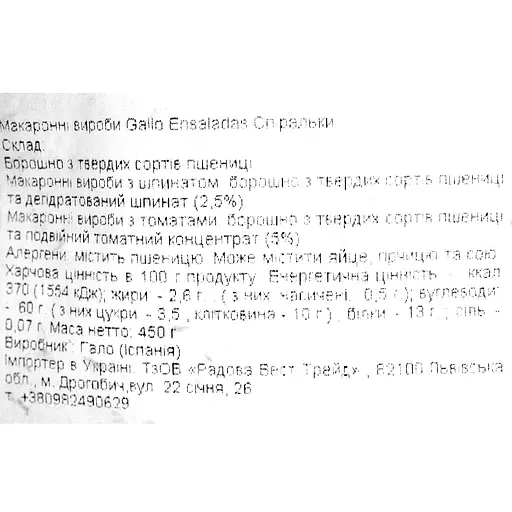 Макаронні вироби Gallo Ensaladas Спіральки
Склад:
Борошно з твердих сортів пшениці
Макаронні вироби з шпинатом: борошно з твердих сортів пшениці
та дегідратований шпинат (2,5%)
Макаронні вироби з томатами: борошно з твердих сортів пшениці,
та подвійний томатний концентрат (5%)
Алергени: містить пшеницю. Може містити яйце, гірчицю та сою.
Харчова цінність в 100 г продукту: Енергетична цінність - ккал
370 (1554 кДж); жири - 2,6 г. , ( з них насичені: 0,5 г.); вуглеводи:
- 60 г. ( з них цукри - 3,5 , клітковина - 10 г) , білки - 13 г.; сіль -
0,07 г. Маса нетто: 450 г
Виробник: Гало (Іспанія)
Імпортер в Україні: ТзОВ «Радова Вест Трейд» , 82100 Львівська
обл., м. Дрогобич,вул. 22 січня, 26
т. +380982490629